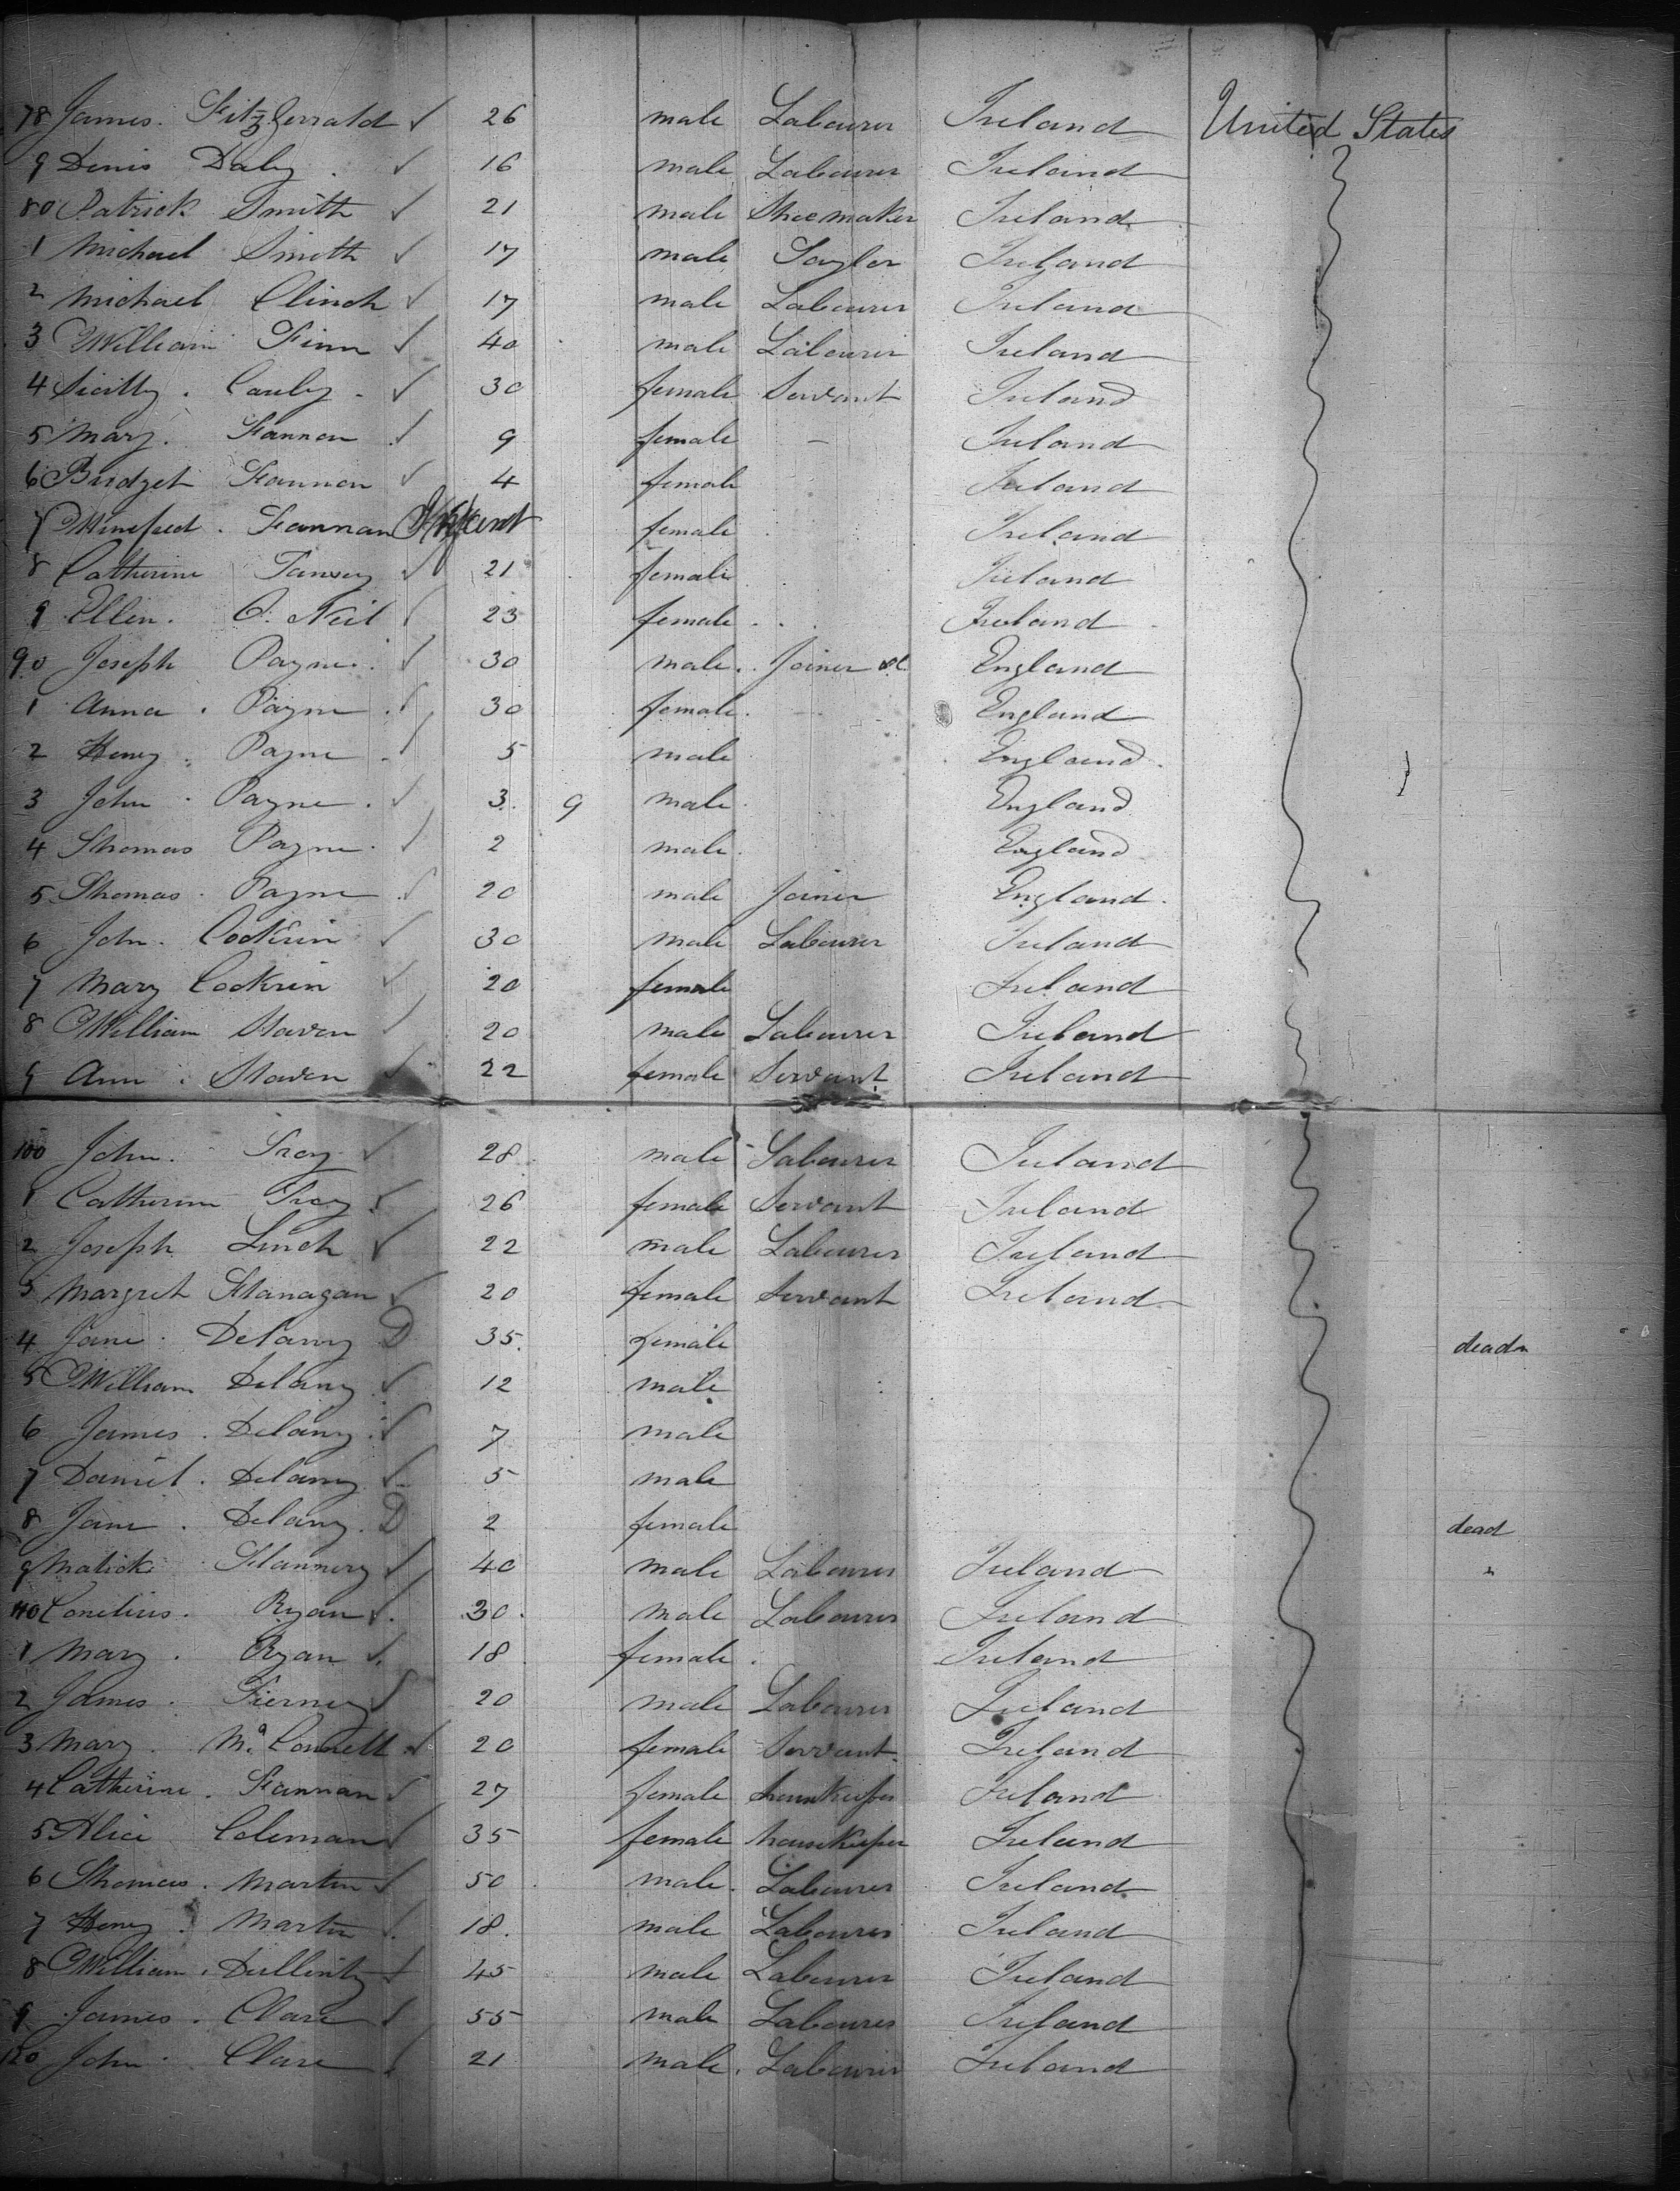 78 James. Fitz Gerrald ✓ 26 male Labourer Ireland United States
9 Denis Daly ✓ 16 male Labourer Ireland
80 Patrick Smith ✓ 21 male Shoemaker Ireland
1 Michael Smith ✓ 17 male Taylor Ireland
2 Michael Clinch ✓ 17 male Labourer Ireland
3 William Finn ✓ 40 male Labourer Ireland
4 ✓ 30 female Servant Ireland
5 Mary. Fannon ✓ 9 female – Ireland
6 Bridget Fannon ✓ 4 female Ireland
7 Winefred. Fannan Infant female Ireland
8 Catherine Tansey ✓ 21 female Ireland
9 Ellen. O. Neil ✓ 23 female Ireland
90 Joseph Payne ✓ 30 male Joiner England
1 Anna. Payne ✓ 30 female England
2 Henry Payne ✓ 5 male England
3 John Payne ✓ 3 9 male England
4 Thomas Payne ✓ 2 male England
5 Thomas Payne ✓ 20 male Joiner England
6 John. Cockrin ✓ 30 male Labourer Ireland
7 Mary Cockrin ✓ 20 female Ireland
8 William Staven ✓ 20 male Labourer Ireland
9 Ann Staven ✓ 22 female Servant Ireland
100 John. Troy ✓ 28 male Labourer Ireland
1 Catherine Troy ✓ 26 female Servant Ireland
2 Joseph Linch ✓ 22 male Labourer Ireland
3 Margret Flanagan ✓ 20 female Servant Ireland
4 Jane. Delany D 35 female dead
5 William Delany ✓ 12 male
6 James. Delany ✓ 7 male
7 Daniel. Delany ✓ 5 male
8 Jane. Delany. D 2 female dead
9 Flannery ✓ 40 male Labourer Ireland
110 Conelius. Ryan ✓ 30 male Labourer Ireland
1 Mary. Ryan ✓ 18 female Ireland
2 James. Tierney ✓ 20 male Labourer Ireland
3 Mary. ✓ 20 female Servant Ireland
4 Catherine. Fannan ✓ 27 female housekeeper Ireland
5 Alice Coleman ✓ 35 female housekeeper Ireland
6 Thomas. Martin ✓ 50 male Labourer Ireland
7 Henry Martin ✓ 18 male Labourer Ireland
8 William. ✓ 45 male Labourer Ireland
9 James. Clare ✓ 55 male Labourer Ireland
120 John Clare ✓ 21 male Labourer Ireland